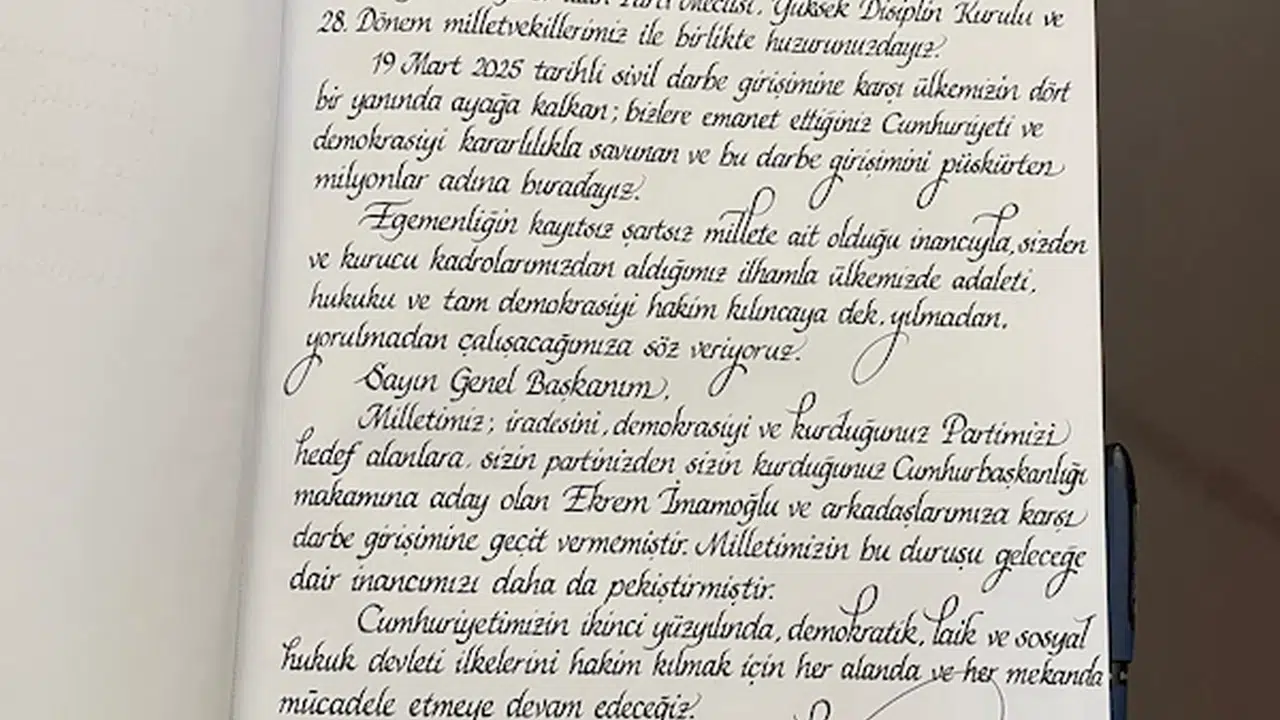 Parti Meclisi, Yüksek Disiplin Kurulu ve
28. Dönem milletvekillerimiz ile birlikte huzurunuzdayız.
19 Mart 2025 tarihli sivil darbe girişimine karşı ülkemizin dört
bir yanında ayağa kalkan; bizlere emanet ettiğiniz Cumhuriyeti ve
demokrasiyi kararlılıkla savunan ve bu darbe girişimini püskürten
milyonlar adına buradayız.
Egemenliğin kayıtsız şartsız millete ait olduğu inancıyla, sizden
ve kurucu kadrolarımızdan aldığımız ilhamla ülkemizde adaleti,
hukuku ve tam demokrasiyi hakim kılıncaya dek, yılmadan,
yorulmadan çalışacağımıza söz veriyoruz.
Sayın Genel Başkanım,
Milletimiz; iradesini, demokrasiyi ve kurduğunuz Partimizi
hedef alanlara, sizin partinizden sizin kurduğunuz Cumhurbaşkanlığı
makamına aday olan Ekrem İmamoğlu ve arkadaşlarımıza karşı
darbe girişimine geçit vermemiştir. Milletimizin bu duruşu geleceğe
dair inancımızı daha da pekiştirmiştir.
Cumhuriyetimizin ikinci yüzyılında, demokratik, laik ve sosyal
hukuk devleti ilkelerini hakim kılmak için her alanda ve her mekanda
mücadele etmeye devam edeceğiz.